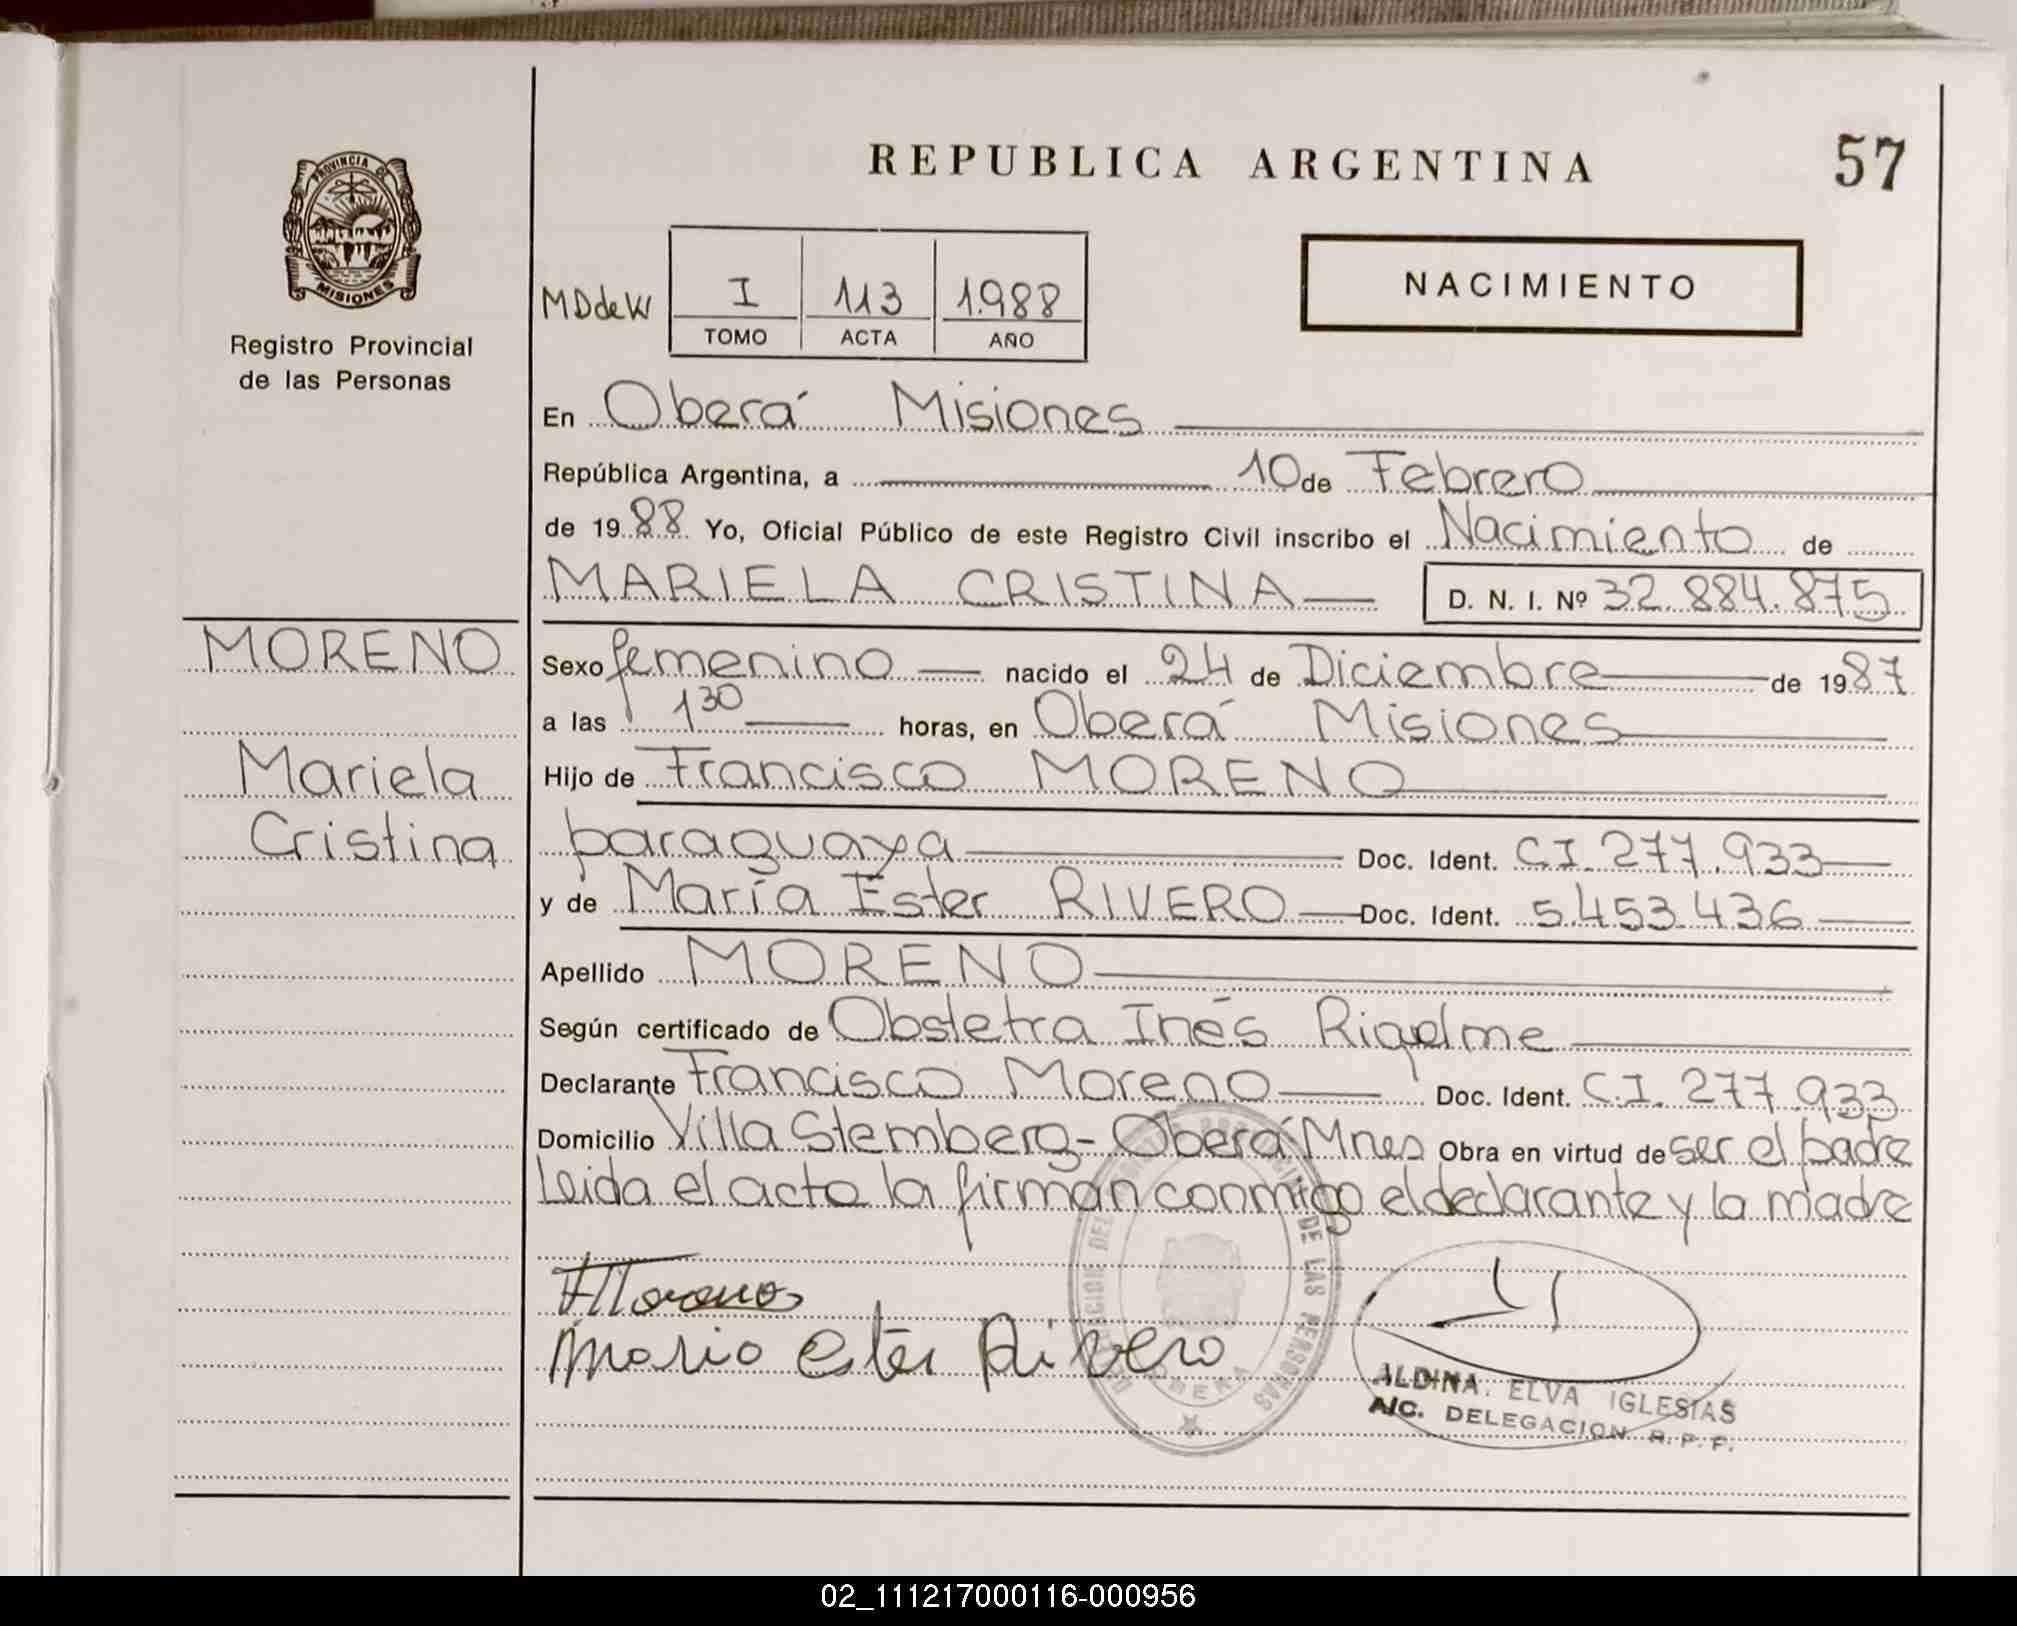 PROVINCIA DE
MISIONES
Registro Provincial
de las Personas
REPUBLICA ARGENTINA
57
NACIMIENTO
MDdeW
I 113 1.988
TOMO ACTA AÑO
En Oberá Misiones
República Argentina, a 10 de Febrero
de 1988 Yo, Oficial Público de este Registro Civil inscribo el Nacimiento de
MARIELA CRISTINA D. N. I. Nº 32.884.875
MORENO
Mariela
Cristina
Sexo femenino nacido el 24 de Diciembre de 1987
a las 1 30 horas, en Oberá Misiones
Hijo de Francisco MORENO
paraguaya Doc. Ident. C.I. 277.933
y de María Ester RIVERO Doc. Ident. 5.453.436
Apellido MORENO
Según certificado de Obstetra Inés Riqelme
Declarante Francisco Moreno Doc. Ident. C.I. 277.933
Domicilio Villa Stemberg - Oberá Mnes Obra en virtud de ser el padre
Leida el acta la firman conmigo el declarante y la madre
FMoreno
Maria Ester Rivero
DE LAS PERSONAS
OBERA
ALDINA ELVA IGLESIAS
A/C. DELEGACION R. P. P.
02_111217000116-000956